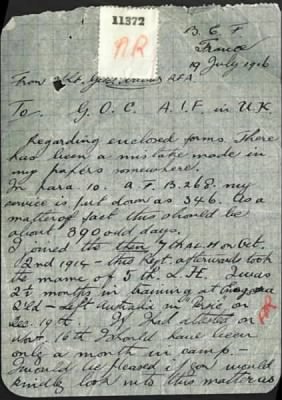 11372
A.R
B. E. F
France
19 July 1916
From 2/Lt. R.F.A
To. G. O. C. A. I. F. in U.K.
Regarding enclosed forms. There
has been a mistake made in
my papers somewhere.
In para 10. A. F. B.268. my
service is put down as 346. As a
matter of fact this should be
about 390 odd days.
I joined the then 7th A.L.H on Oct.
2nd 1914 - this Regt. afterwards took
the name of 5th L.H. I was
2½ months in training at
Q'ld - Left Australia in "Persic" on
Dec. 19th. If I had attested on
Nov. 16th I should have been
only a month in camp. -
I would be pleased if you would
kindly look into this matter as
A.R